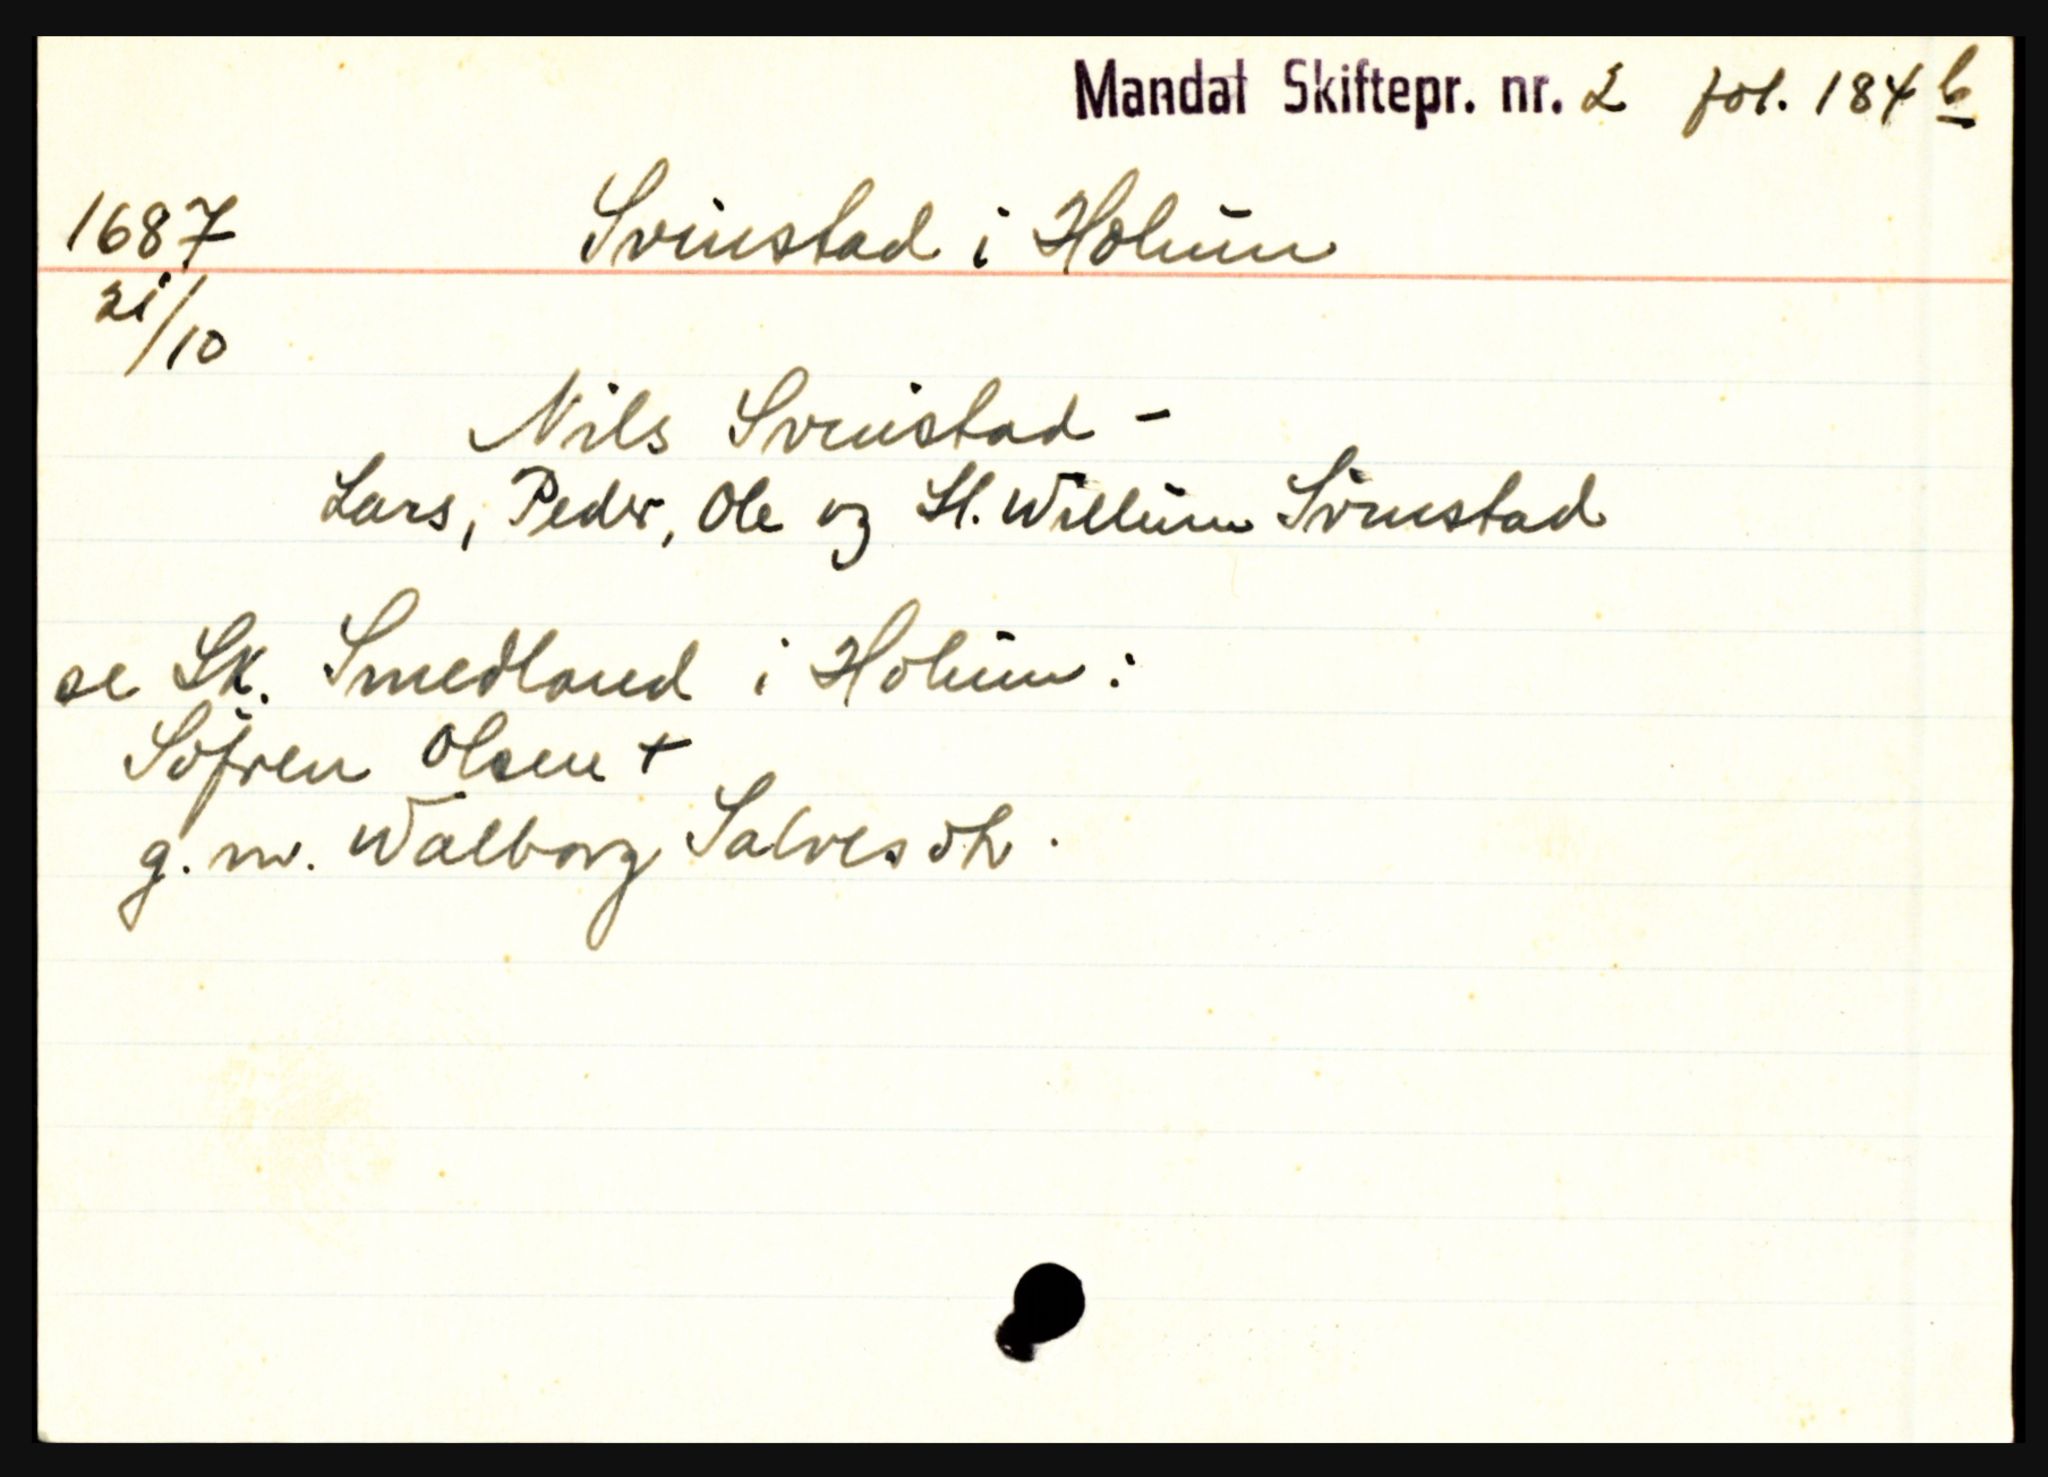 Mandal Skiftepr. nr. 2 fol. 184 b
1687 Svinstad i Holum
21/10
Nils Svinstad -
Lars, Peder, Ole og Sl. Willum Svinstad
se Sk. Smedland i Holum:
Söfren Olsen +
g. m. Walborg Salves dtr.